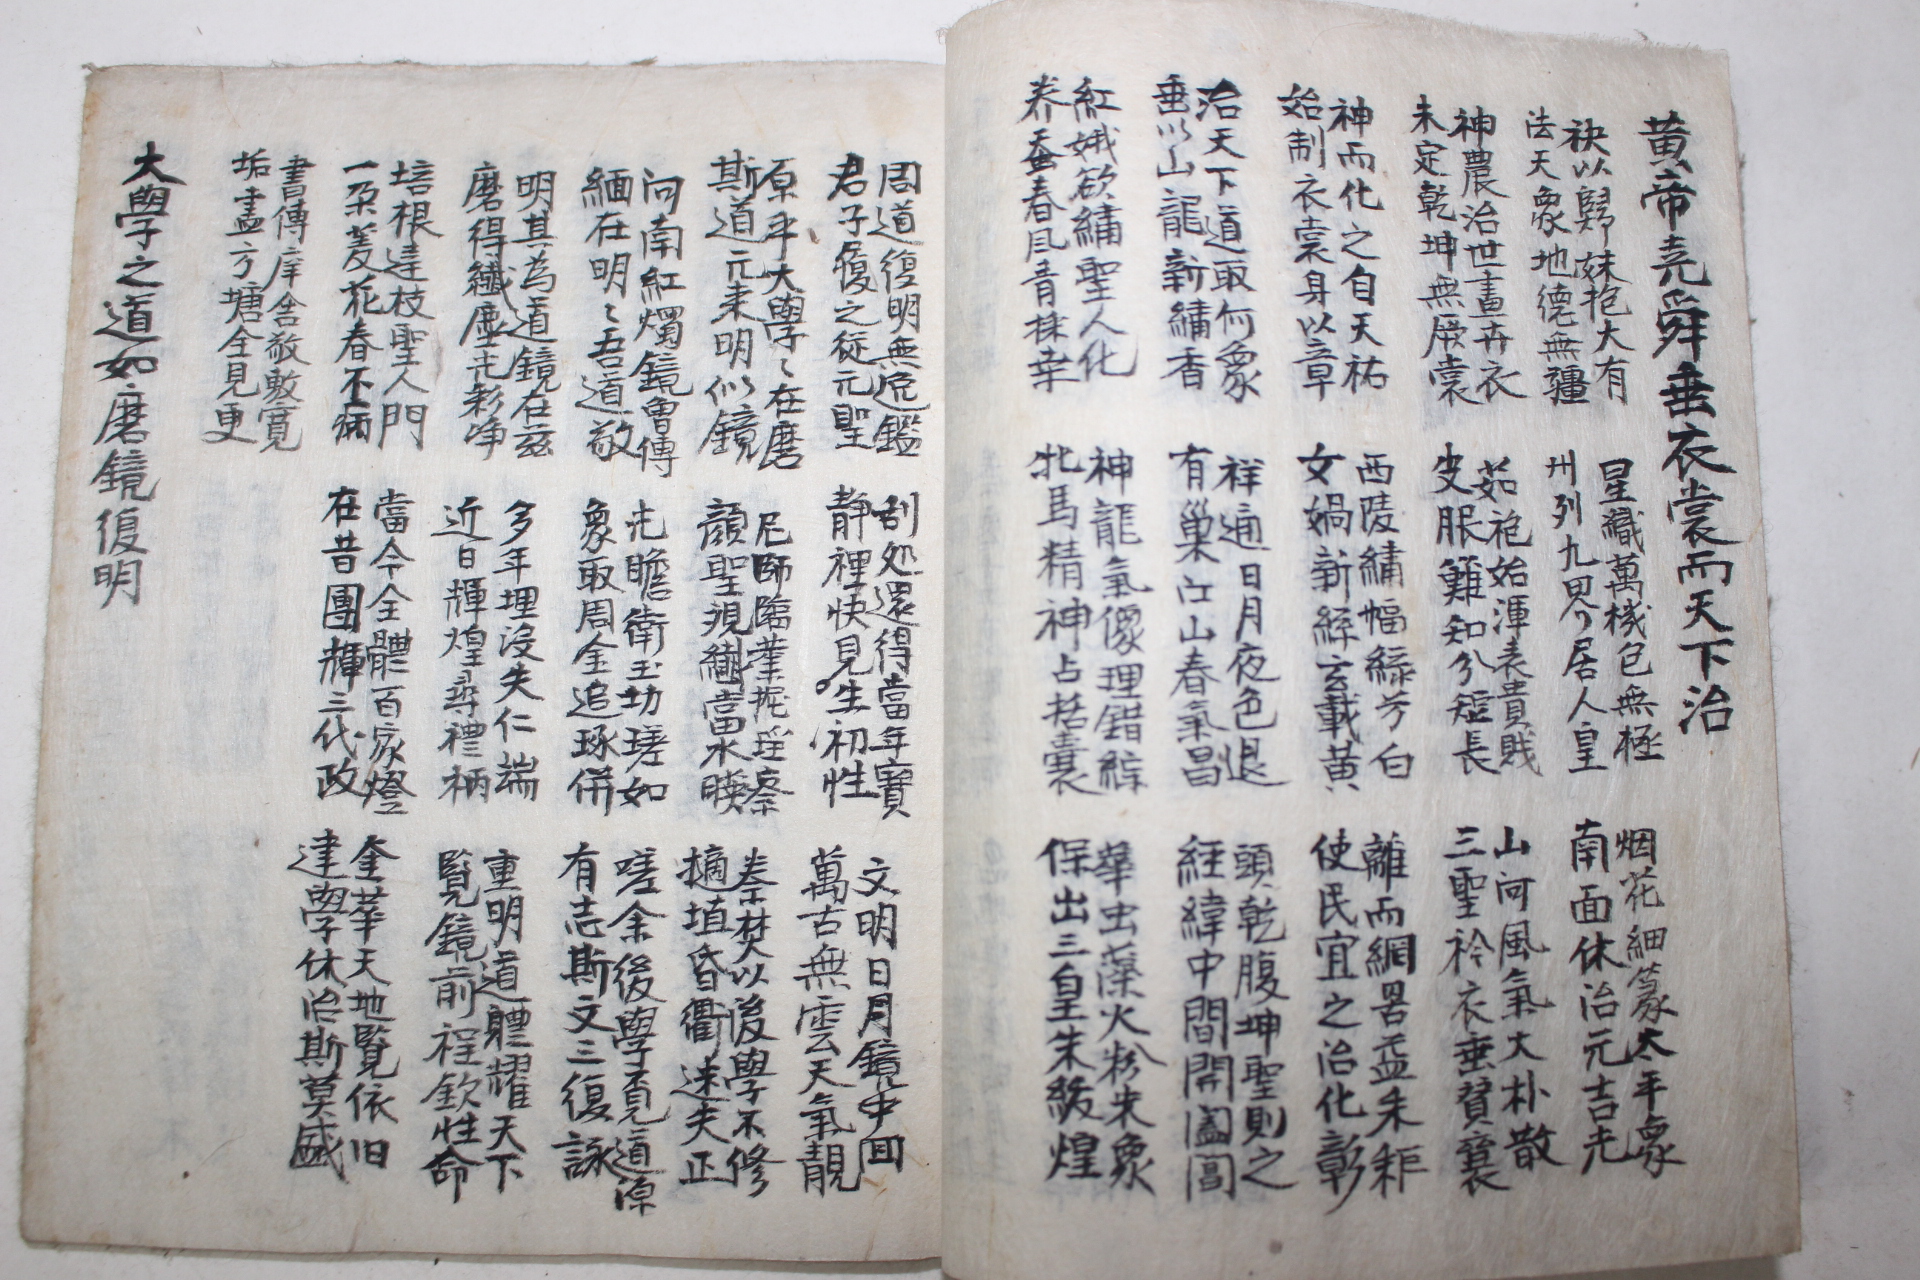 黃帝堯舜垂衣裳而天下治
袂以歸妹抱大有
法天象地德無疆
星織萬機包無極
卅列九界居人皇
烟花細篆太平象
南面休治元吉光
神農治世畫卉衣
未定乾坤無辰裳
茹袍始渾表貴賎
皮服難知分短長
山河風氣大朴散
三聖衿衣垂賁襄
神而化之自天祐
始制衣裳身以章
西陵繡幅綠兮白
女媧新絲玄載黃
離而網罟益耒耟
使民宜之治化彰
治天下道取何象
垂以山龍新繡香
祥通日月夜色退
有巢江山春氣昌
頭乾腹坤聖則之
經緯中間開闔閶
紅娥欲繡聖人化
养蚕春風青採桒
神龍氣像理錯綜
牝馬精神占括囊
華虫藻火粉米象
保出三皇朱紱煌
周道復明無危鑑
君子復之從元聖
刮処還得當年寶
靜裡快見生初性
文明日月鏡中回
萬古無雲天氣靚
原乎大學〻在磨
斯道元來明似鏡
尼師臨業握瑶察
顔聖視繡當水暎
秦焚以後學不修
摘埴昏衢迷失正
河南紅燭鏡曾傳
緬在明〻吾道敬
光瞻衛玉切瑳如
象取周金追琢併
嗟余後學覓道源
有志斯文三復詠
明其為道鏡在玆
磨得纖塵光彩净
多年埋没失仁端
近日輝煌尋禮柄
重明道軆耀天下
覽鏡前程欽性命
培根達枝聖人門
一朶菱花春不病
當今全體百家燈
在昔團輝三代政
奎華天地覽依旧
建學休治斯莫盛
書傳庠舍敞敷寬
垢盡方塘全見更
大學之道如磨鏡復明